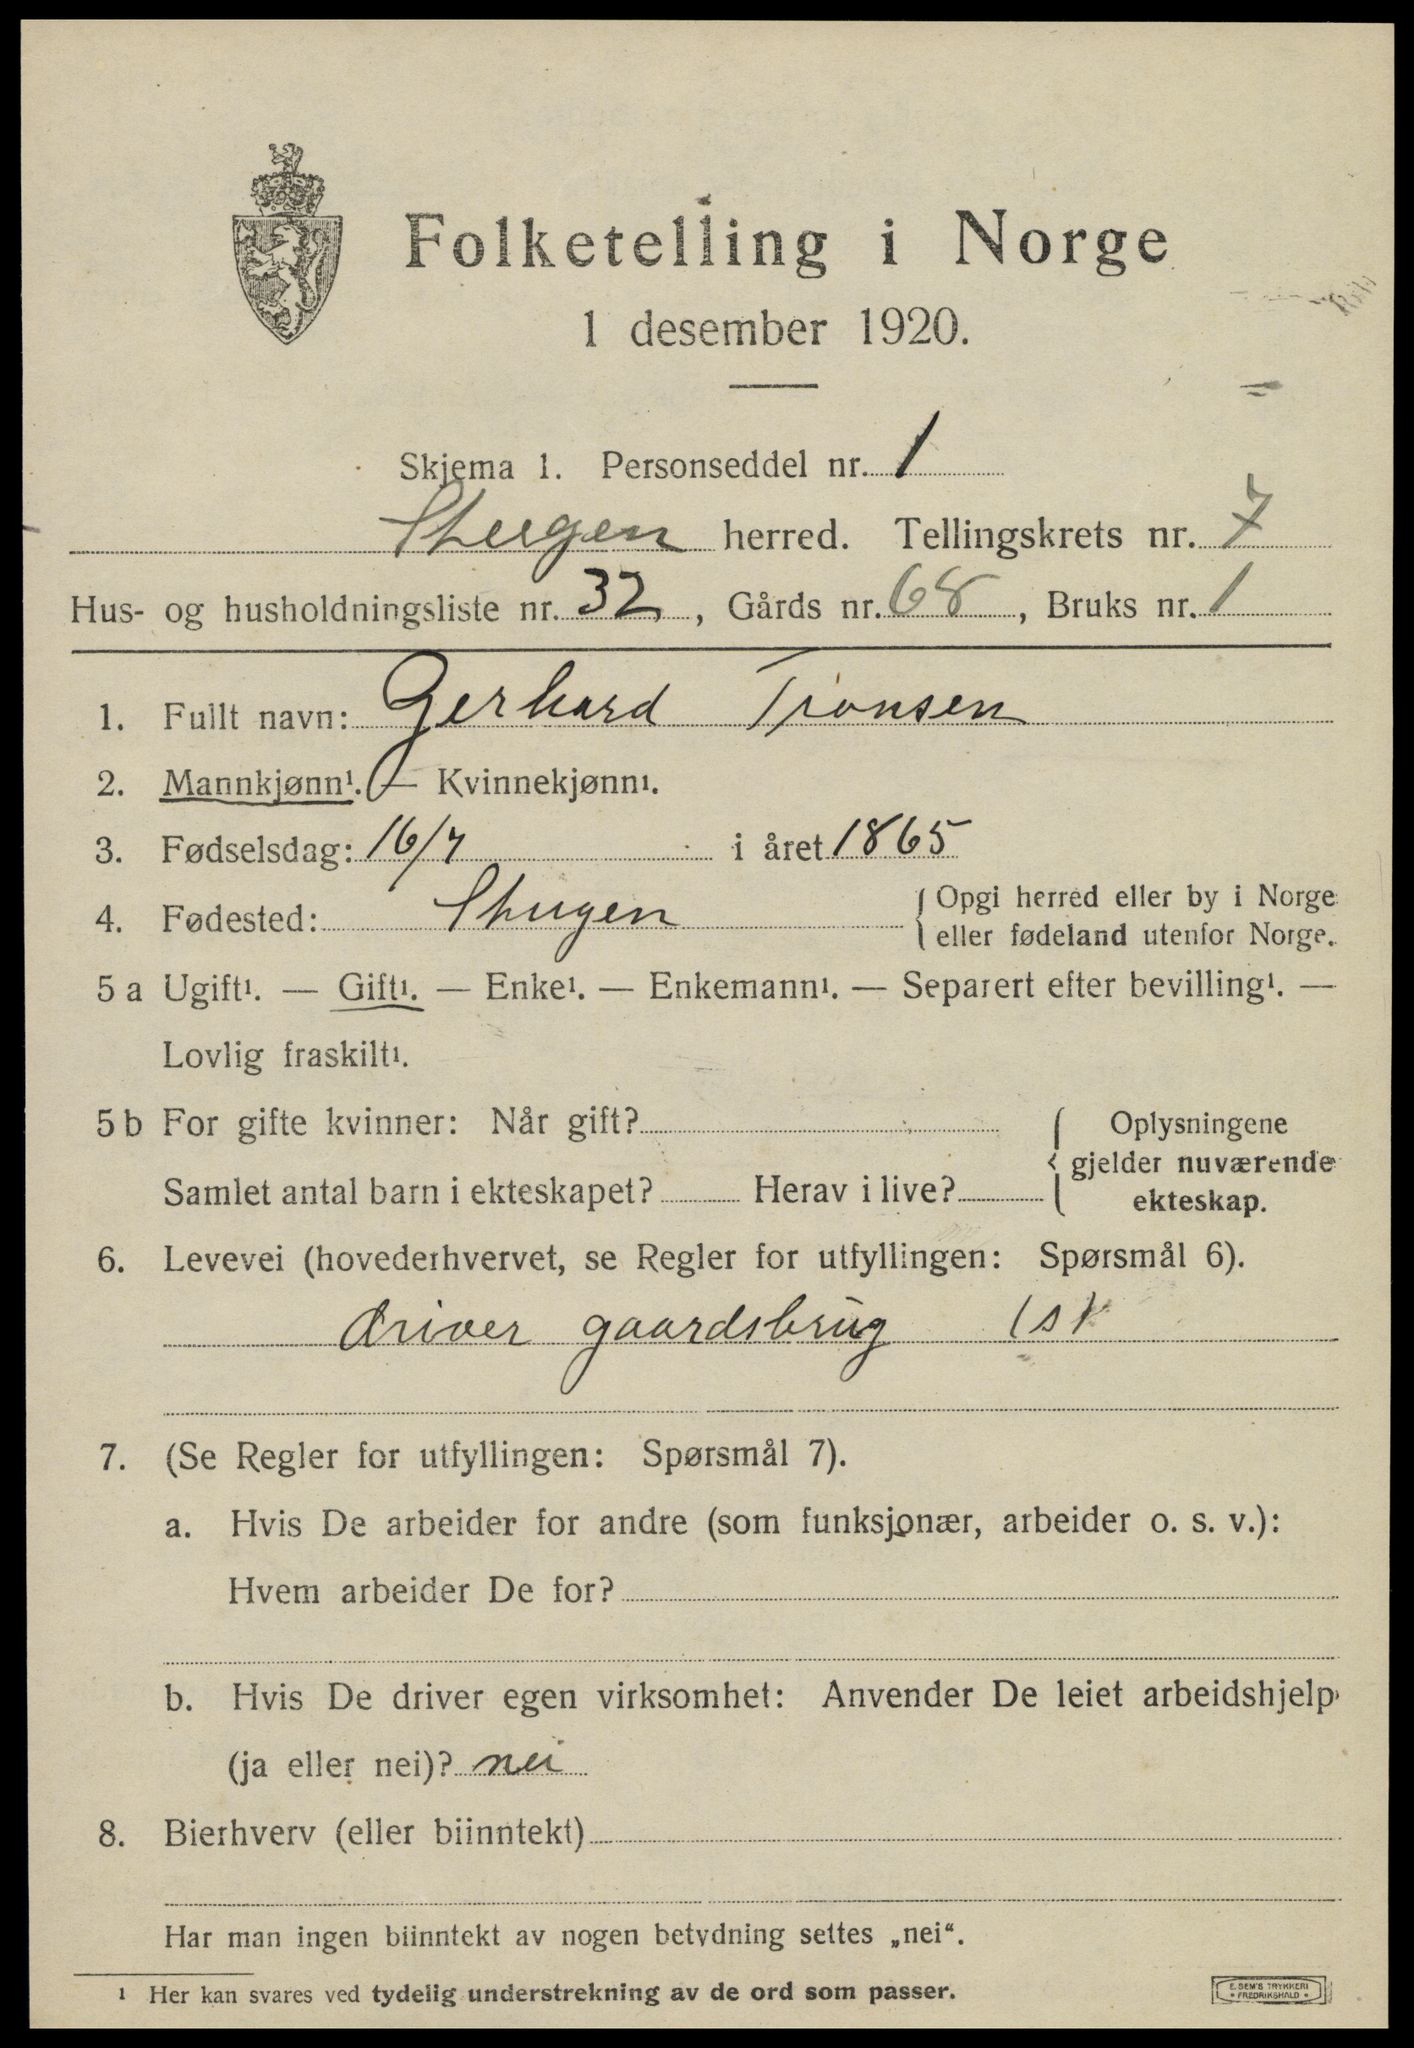 Folketelling i Norge
1 desember 1920.
Skjema 1. Personseddel nr. 1
Steigen herred. Tellingskrets nr. 7
Hus- og husholdningsliste nr. 32, Gårds nr. 68, Bruks nr. 1
1. Fullt navn: Gerhard Tronsen
2. Mannkjønn¹. — Kvinnekjønn¹.
3. Fødselsdag: 16/7 i året 1865
4. Fødested: Steigen { Opgi herred eller by i Norge
eller fødeland utenfor Norge.
5 a Ugift¹. — Gift¹. — Enke¹. — Enkemann¹. — Separert efter bevilling¹. —
Lovlig fraskilt¹.
5 b For gifte kvinner: Når gift?
Samlet antal barn i ekteskapet? Herav i live?
Oplysningene
gjelder nuværende
ekteskap.
6. Levevei (hovederhvervet, se Regler for utfyllingen: Spørsmål 6).
driver gaardsbrug
7. (Se Regler for utfyllingen: Spørsmål 7).
a. Hvis De arbeider for andre (som funksjonær, arbeider o. s. v.):
Hvem arbeider De for?
b. Hvis De driver egen virksomhet: Anvender De leiet arbeidshjelp
(ja eller nei)? nei
8. Bierhverv (eller biinntekt)
Har man ingen biinntekt av nogen betydning settes „nei“.
¹ Her kan svares ved tydelig understrekning av de ord som passer.
E. SEM'S TRYKKERI
• FREDRIKSHALD •